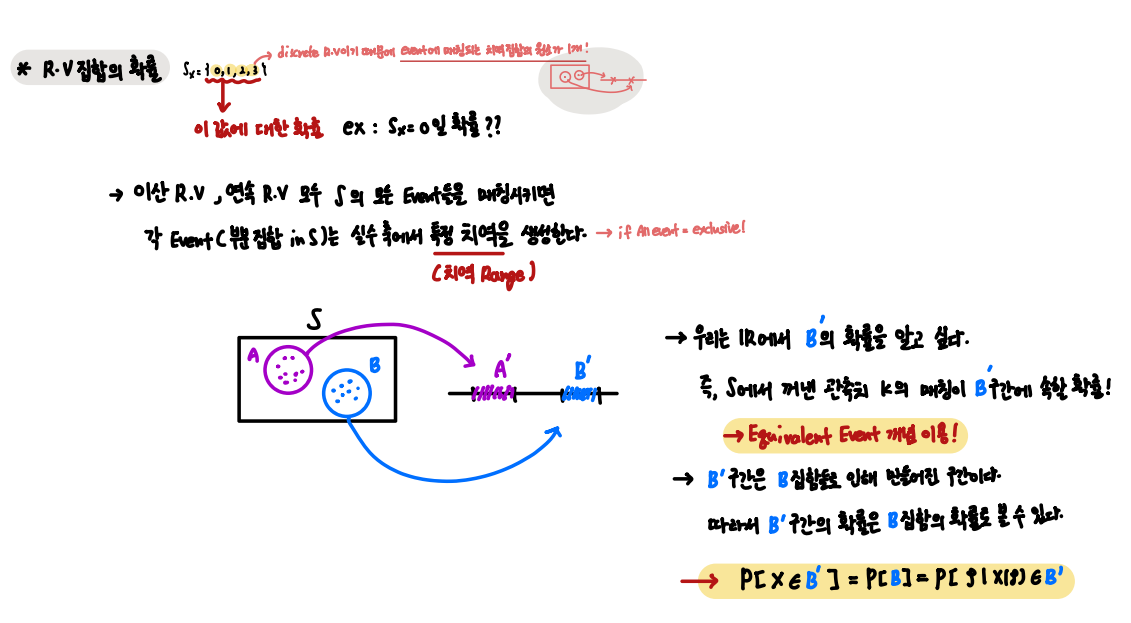 * R.V 집합의 확률
Sx = { 0, 1, 2, 3 }
discrete R.V이기 때문에 event에 매칭되는 치역집합의 원소가 1개!
이 값에 대한 확률 ex : Sx = 0 일 확률??
→ 이산 R.V , 연속 R.V 모두 S의 모든 Event들을 매칭시키면
각 Event( 부분집합 in S)는 실수 축에서 특정 치역을 생성한다. → if An event = exclusive!
(치역 Range)
S
A
B
A'
B'
→ 우리는 IR에서 B'의 확률을 알고 싶다.
즉, S에서 꺼낸 관측치 K의 매칭이 B'구간에 속할 확률!
→ Equivalent Event 개념 이용!
→ B'구간은 B집합들로 인해 만들어진 구간이다.
따라서 B'구간의 확률은 B집합의 확률로 볼 수 있다.
→ P[ X ∈ B' ] = P[B] = P[ ζ | X(ζ) ∈ B'